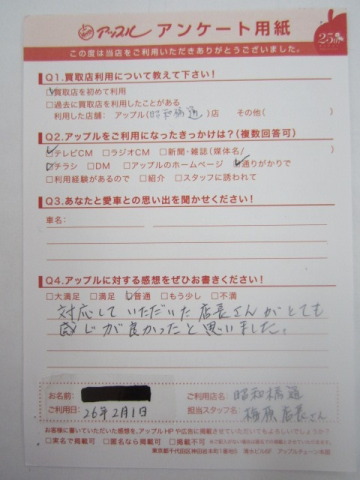 アップル アンケート用紙
25th
この度は当店をご利用いただきありがとうございました。
Q1.買取店利用について教えて下さい!
□買取店を初めて利用
□過去に買取店を利用したことがある
利用した店舗: アップル(昭和橋通)店 その他( )
Q2.アップルをご利用になったきっかけは?(複数回答可)
□テレビCM □ラジオCM □新聞・雑誌(媒体名/ )
□チラシ □DM □アップルのホームページ □通りがかりで
□利用経験があるので □紹介 □スタッフに誘われて
Q3.あなたと愛車との思い出を聞かせください!
車名:
Q4.アップルに対する感想をぜひお書きください!
□大満足 □満足 □普通 □もう少し □不満
対応していただいた店長さんがとても
感じが良かったと思いました。
お名前: ご利用店名: 昭和橋通
ご利用日: 26年2月1日 担当スタッフ名: 梅原店長さん
お客様に書いていただいた感想を、アップルHPや広告に掲載させていただいてもよろしいでしょうか?
□実名で掲載可 □匿名なら掲載可 □掲載不可